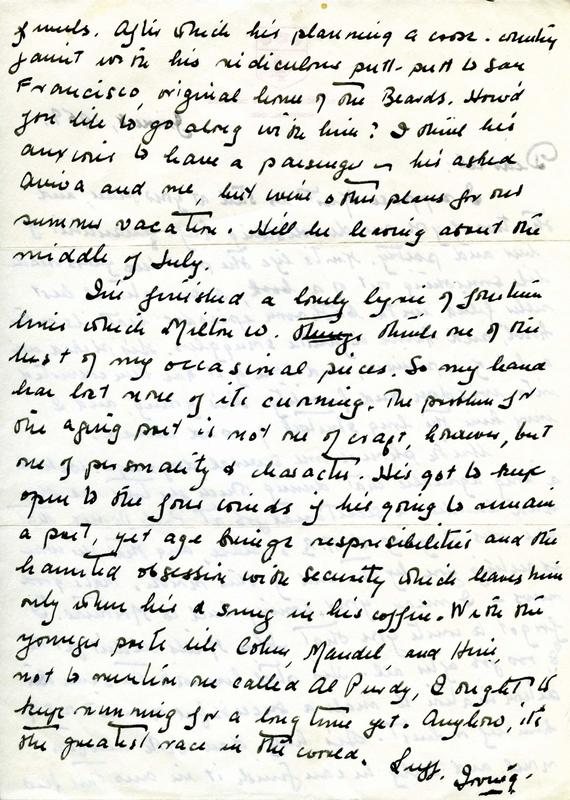 funds. After which he's planning a cross-country
jaunt with his ridiculous putt-putt to San
Francisco, original home of the Beards. How'd
you like to go along with him? I think he's
anxious to have a passenger – he's asked
Aviva and me, but we've other plans for our
summer vacation. He'll be leaving about the
middle of July.
I've finished a lovely lyric of fourteen
lines which Milton W. thinks one of the
best of my occasional pieces. So my hand
has lost none of its cunning. The problem for
the aging poet is not one of craft, however, but
one of personality & character. He's got to keep
open to the four winds if he's going to remain
a poet, yet age brings responsibilities and the
haunted obsession with security which leaves him
only when he's snug in his coffin. With the
younger poets like Cohen, Mandel and Hine,
not to mention one called Al Purdy, I ought to
keep running for a long time yet. Anyhow, it's
the greatest race in the world.
Irving.